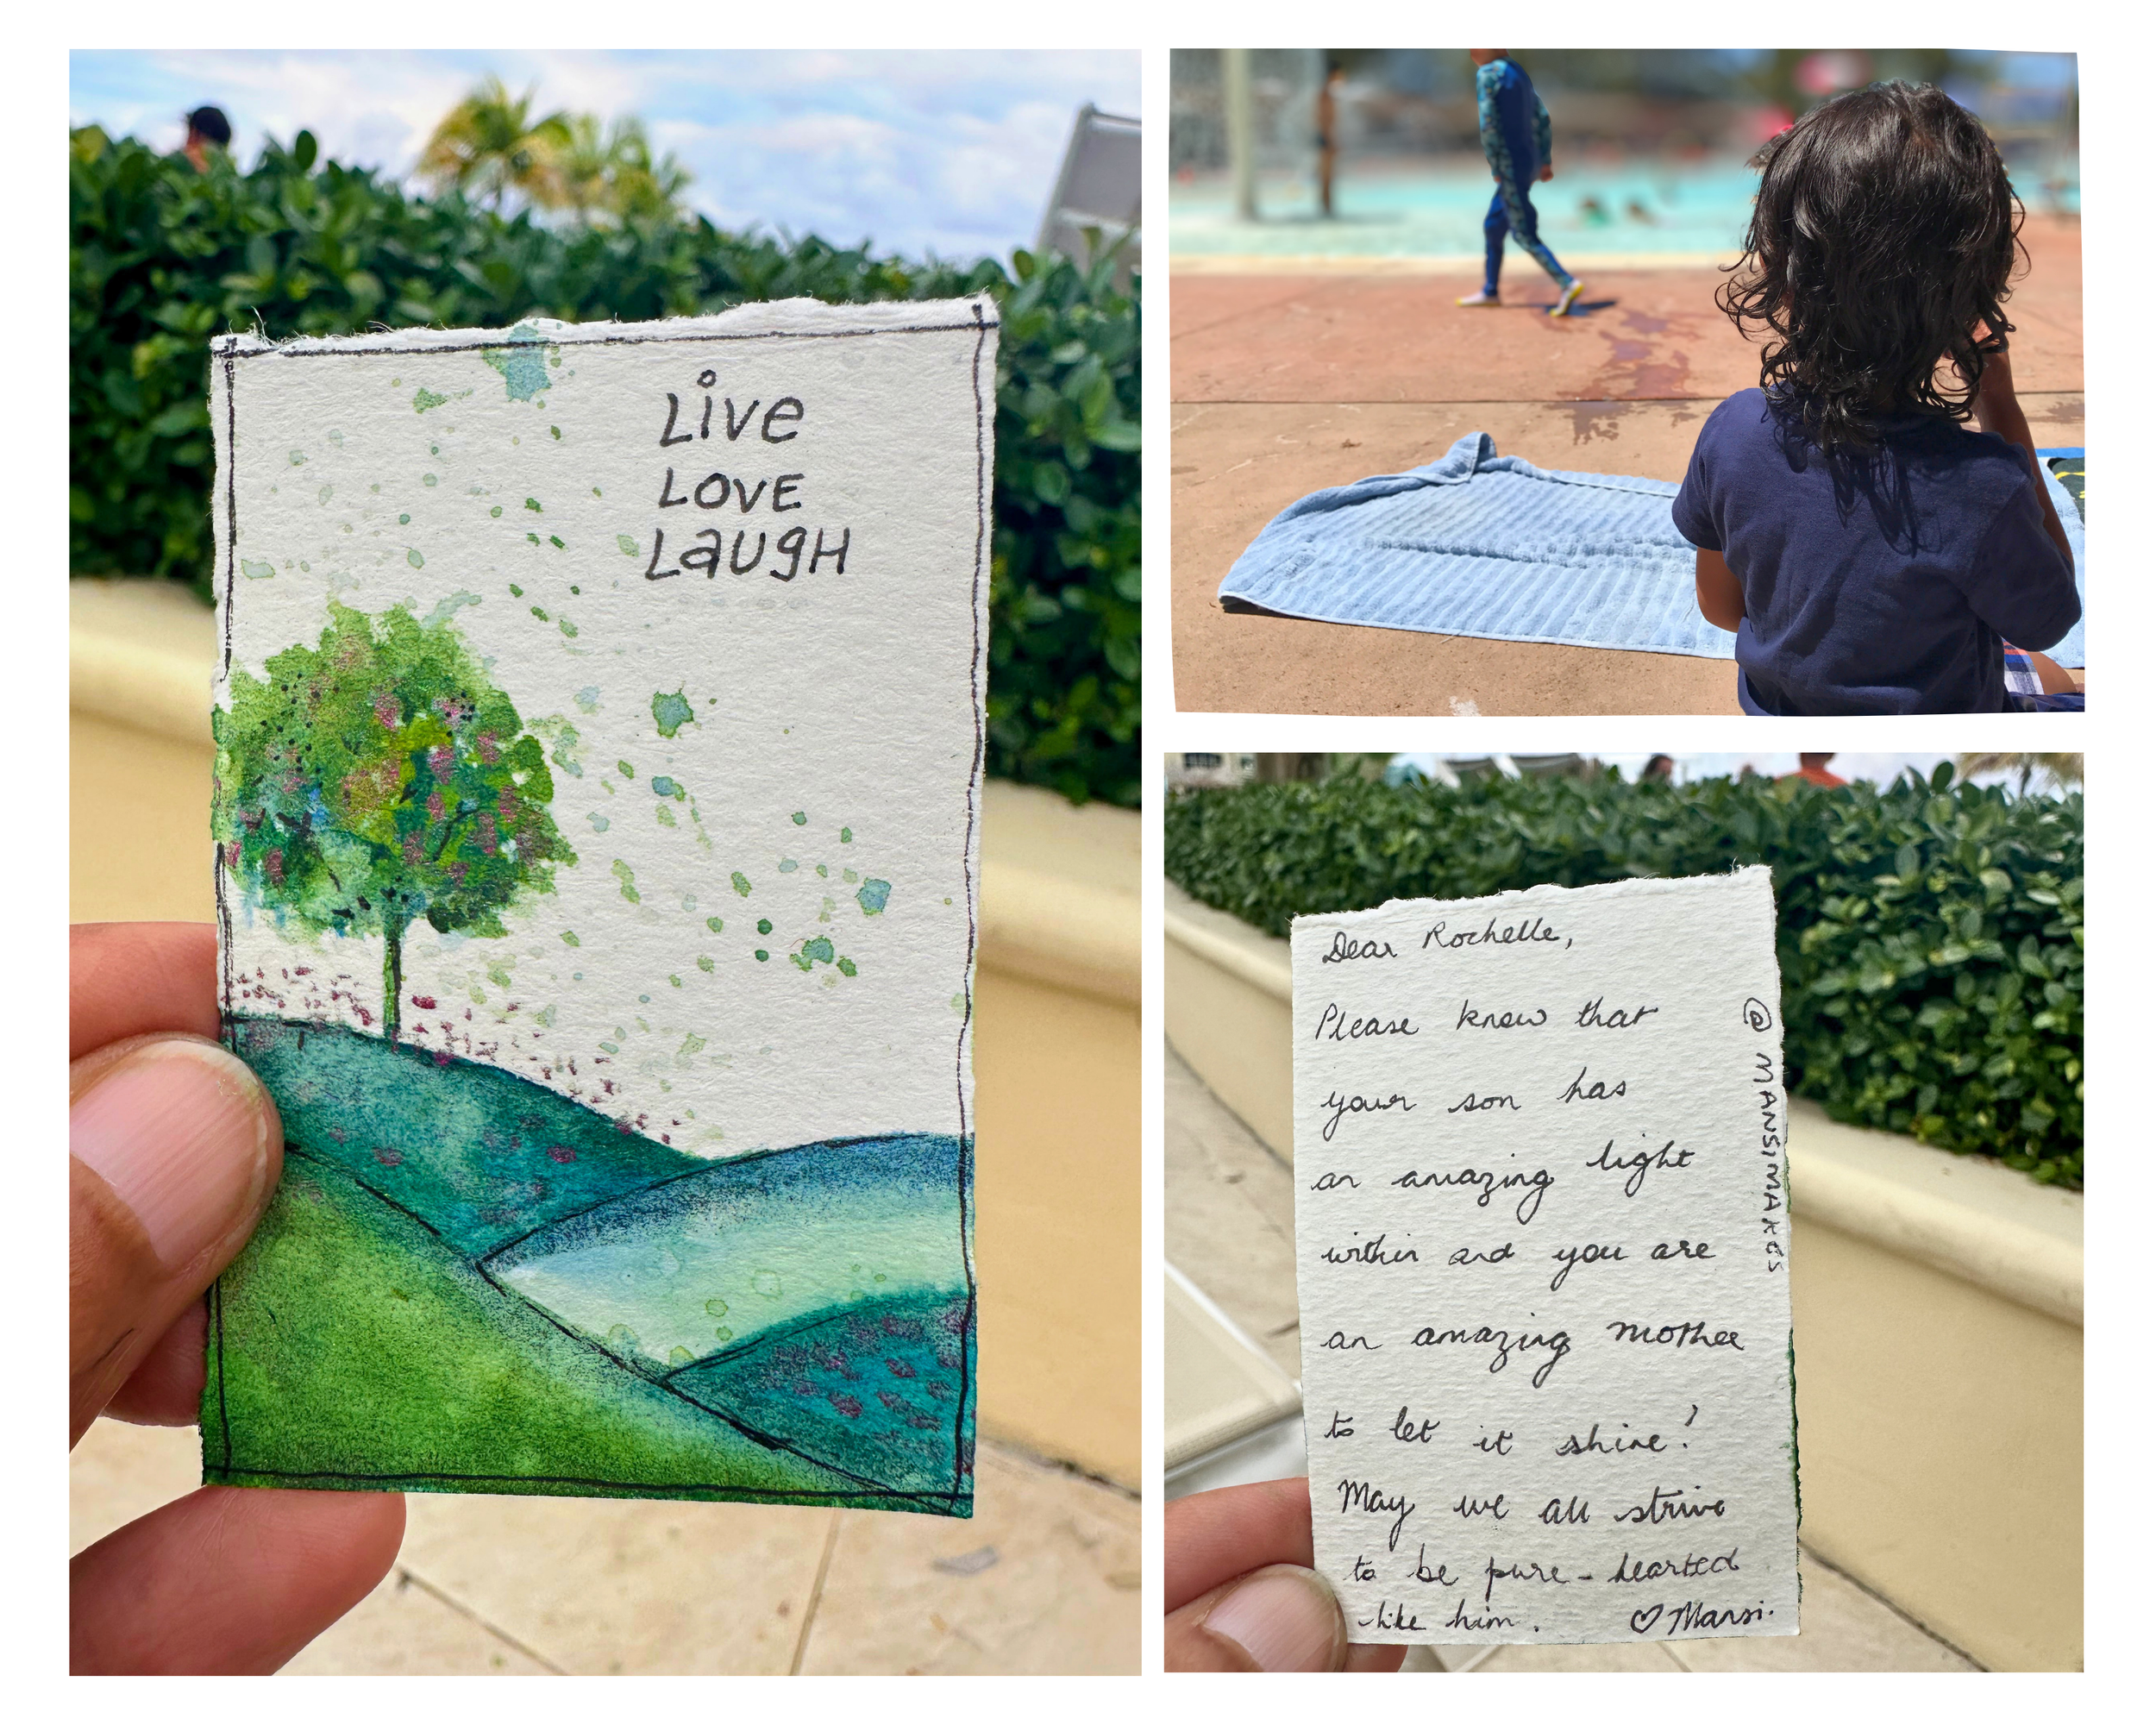 Live
LOVE
LaugH
Dear Rochelle,
Please know that
your son has
an amazing light
within and you are
an amazing mother
to let it shine!
May we all strive
to be pure-hearted
like him. ♡ Mansi.
@MANSIMAKES